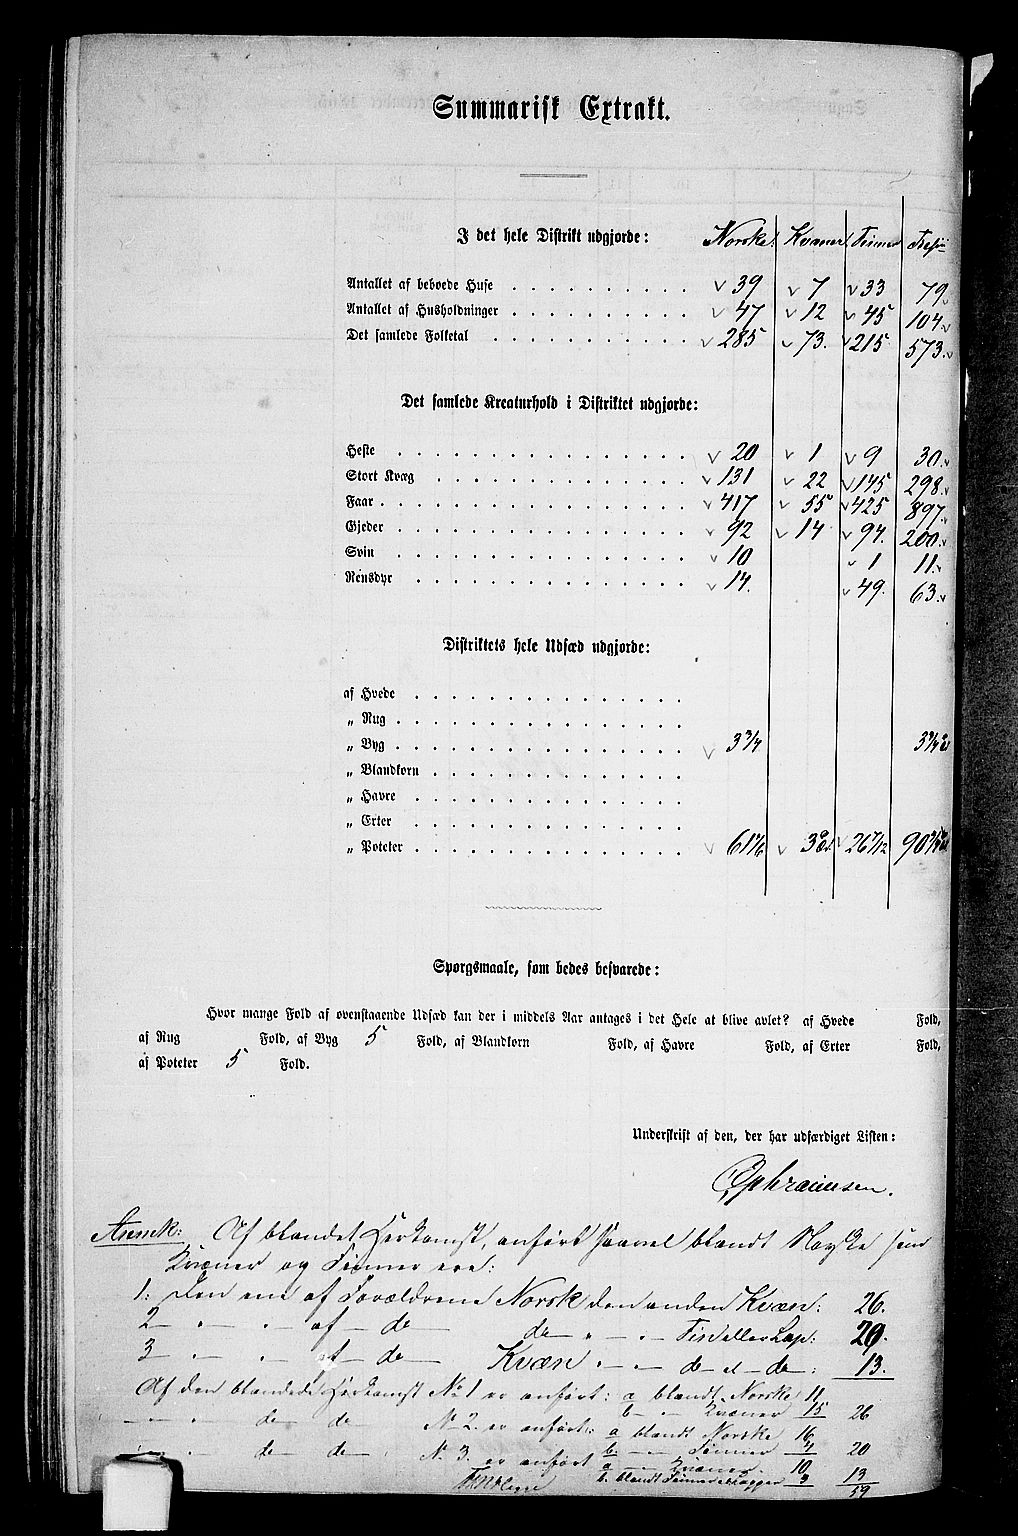 Summarisk Extrakt.
I det hele Distrikt udgjorde: Norske. Kvæner. Finner
Antallet af beboede Huse 39 7 33 79
Antallet af Husholdninger 47 12 45 104
Det samlede Folketal 285 73. 215 573.
Det samlede Kreaturhold i Distriktet udgjorde:
Heste 20 1 9 30.
Stort Kvæg 131 22 145 298.
Faar 417 55 425 897.
Gjeder 92 14 94. 200.
Svin 10 1 11.
Rensdyr 14. 49. 63.
Distriktets hele Udsæd udgjorde:
af Hvede
„ Rug
„ Byg 3 3/4 3 3/4
„ Blandkorn
„ Havre
„ Erter
„ Poteter 61 1/6 3 26 7/12 90
Sporgsmaale, som bedes besvarede:
Hvor mange Fold af ovenstaaende Udsæd kan der i middels Aar antages i det Hele at blive avlet? af Hvede Fold,
af Rug Fold, af Byg 5 Fold, af Blandkorn Fold, af Havre Fold, af Erter Fold,
af Poteter 5 Fold.
Underskrift af den, der har udfærdiget Listen:
Ephraimsen.
Anmk: Af blandet Herkomst, anført saavel blandt Norske som
Kvæner og Finner ere:
1: Den ene af Forældrene Norsk den anden Kvæn: 26.
2 — „ — „ af — de — de — „ — „ — Fin eller Lap: 20.
3 — „ — „ af — de — Kvæn „ — „ — de — el — de —: 13.
Af den blandede Herkomst No 1 er anført: a blandt Norske 11
b — „ — Kvæner 15 26
— „ — „ de — de — No 2. er anført: a blandt Norske 16
b. — „ — Finner 4 20
— „ — „ de — de — No 3. er anført a — „ — Kvæner 10
b. blandt Finner el Lapper 3 13
59